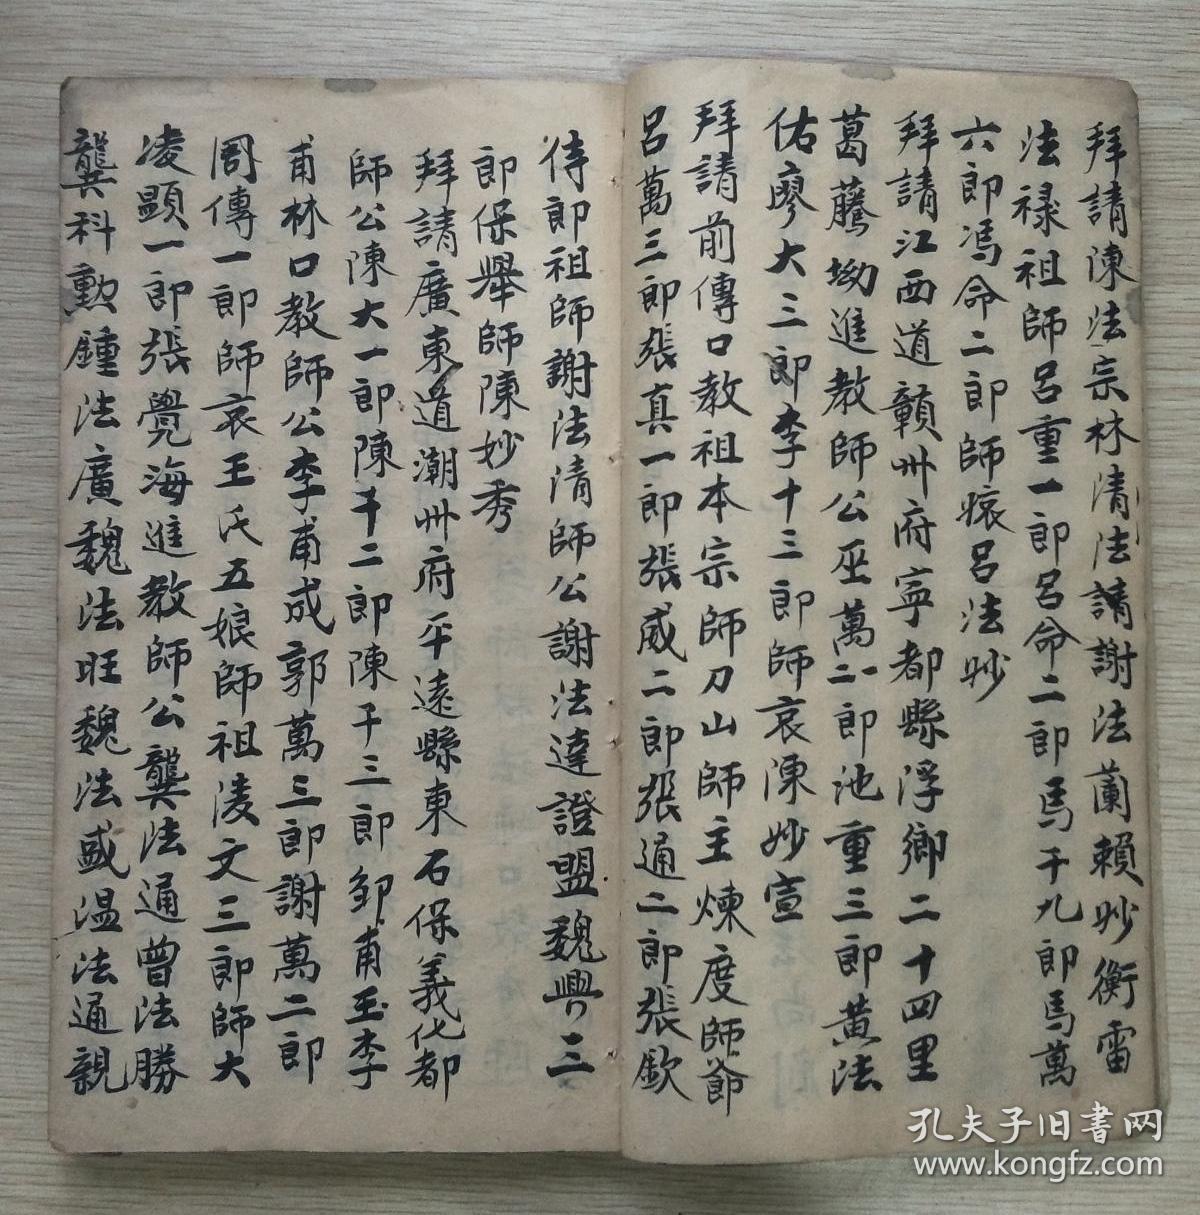 拜請陳法宗林清法請謝法蘭賴妙衡雷
法祿祖師呂重一郎呂命二郎馬千九郎馬萬
六郎馮命二郎師娘呂法妙
拜請江西道贛州府寧都縣浮鄉二十四里
葛藤坳進教師公巫萬二郎池重三郎黃法
佑廖大三郎李十三郎師哀陳妙宣
拜請前傳口教祖本宗師刀山師主煉度師爺
呂萬三郎張真一郎張威二郎張通二郎張欽
侍郎祖師謝法清師公謝法達證盟魏興三
郎保舉師陳妙秀
拜請廣東道潮州府平遠縣東石保義化都
師公陳大一郎陳千二郎陳千三郎鄒甫玉李
甫林口教師公李甫成郭萬三郎謝萬二郎
周傳一郎師哀王氏五娘師祖凌文三郎師大
凌顯一郎張覺海進教師公龔法通曾法勝
龔科勳鍾法廣魏法旺魏法盛温法通親
孔夫子旧书网
www.kongfz.com